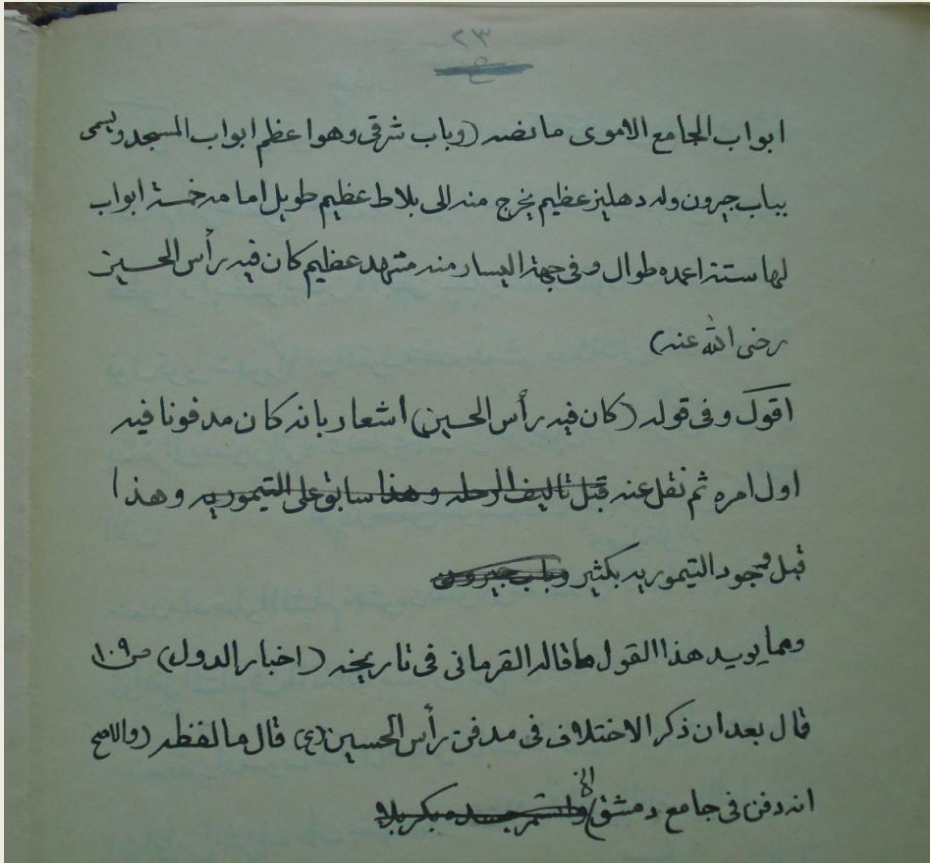 ٢٣
ابواب الجامع الاموى ما نصه (وباب شرقى وهو اعظم ابواب المسجد ويسمى
بباب جيرون وله دهليز عظيم يخرج منه الى بلاط عظيم طويل امامه خمسة ابواب
لها ستة اعمده طوال وفى جهة اليسار منه مشهد عظيم كان فيه رأس الحسين
رضى الله عنه)
اقول وفى قوله (كان فيه رأس الحسين) اشعار بانه كان مدفونا فيه
اول امره ثم نقل عنه قبل تاليف الرحله وهذا سابق على التيموريه وهذا
قبل وجود التيموريه بكثير وباب جيرون
ومما يويد هذا القول ما قاله القرمانى فى تاريخه (اخبار الدول) ص ١٠٩
قال بعد ان ذكر الاختلاف فى مدفن رأس الحسين (ع) قال ما لفظه (والاصح
انه دفن فى جامع دمشق الخ جسده بكربلا